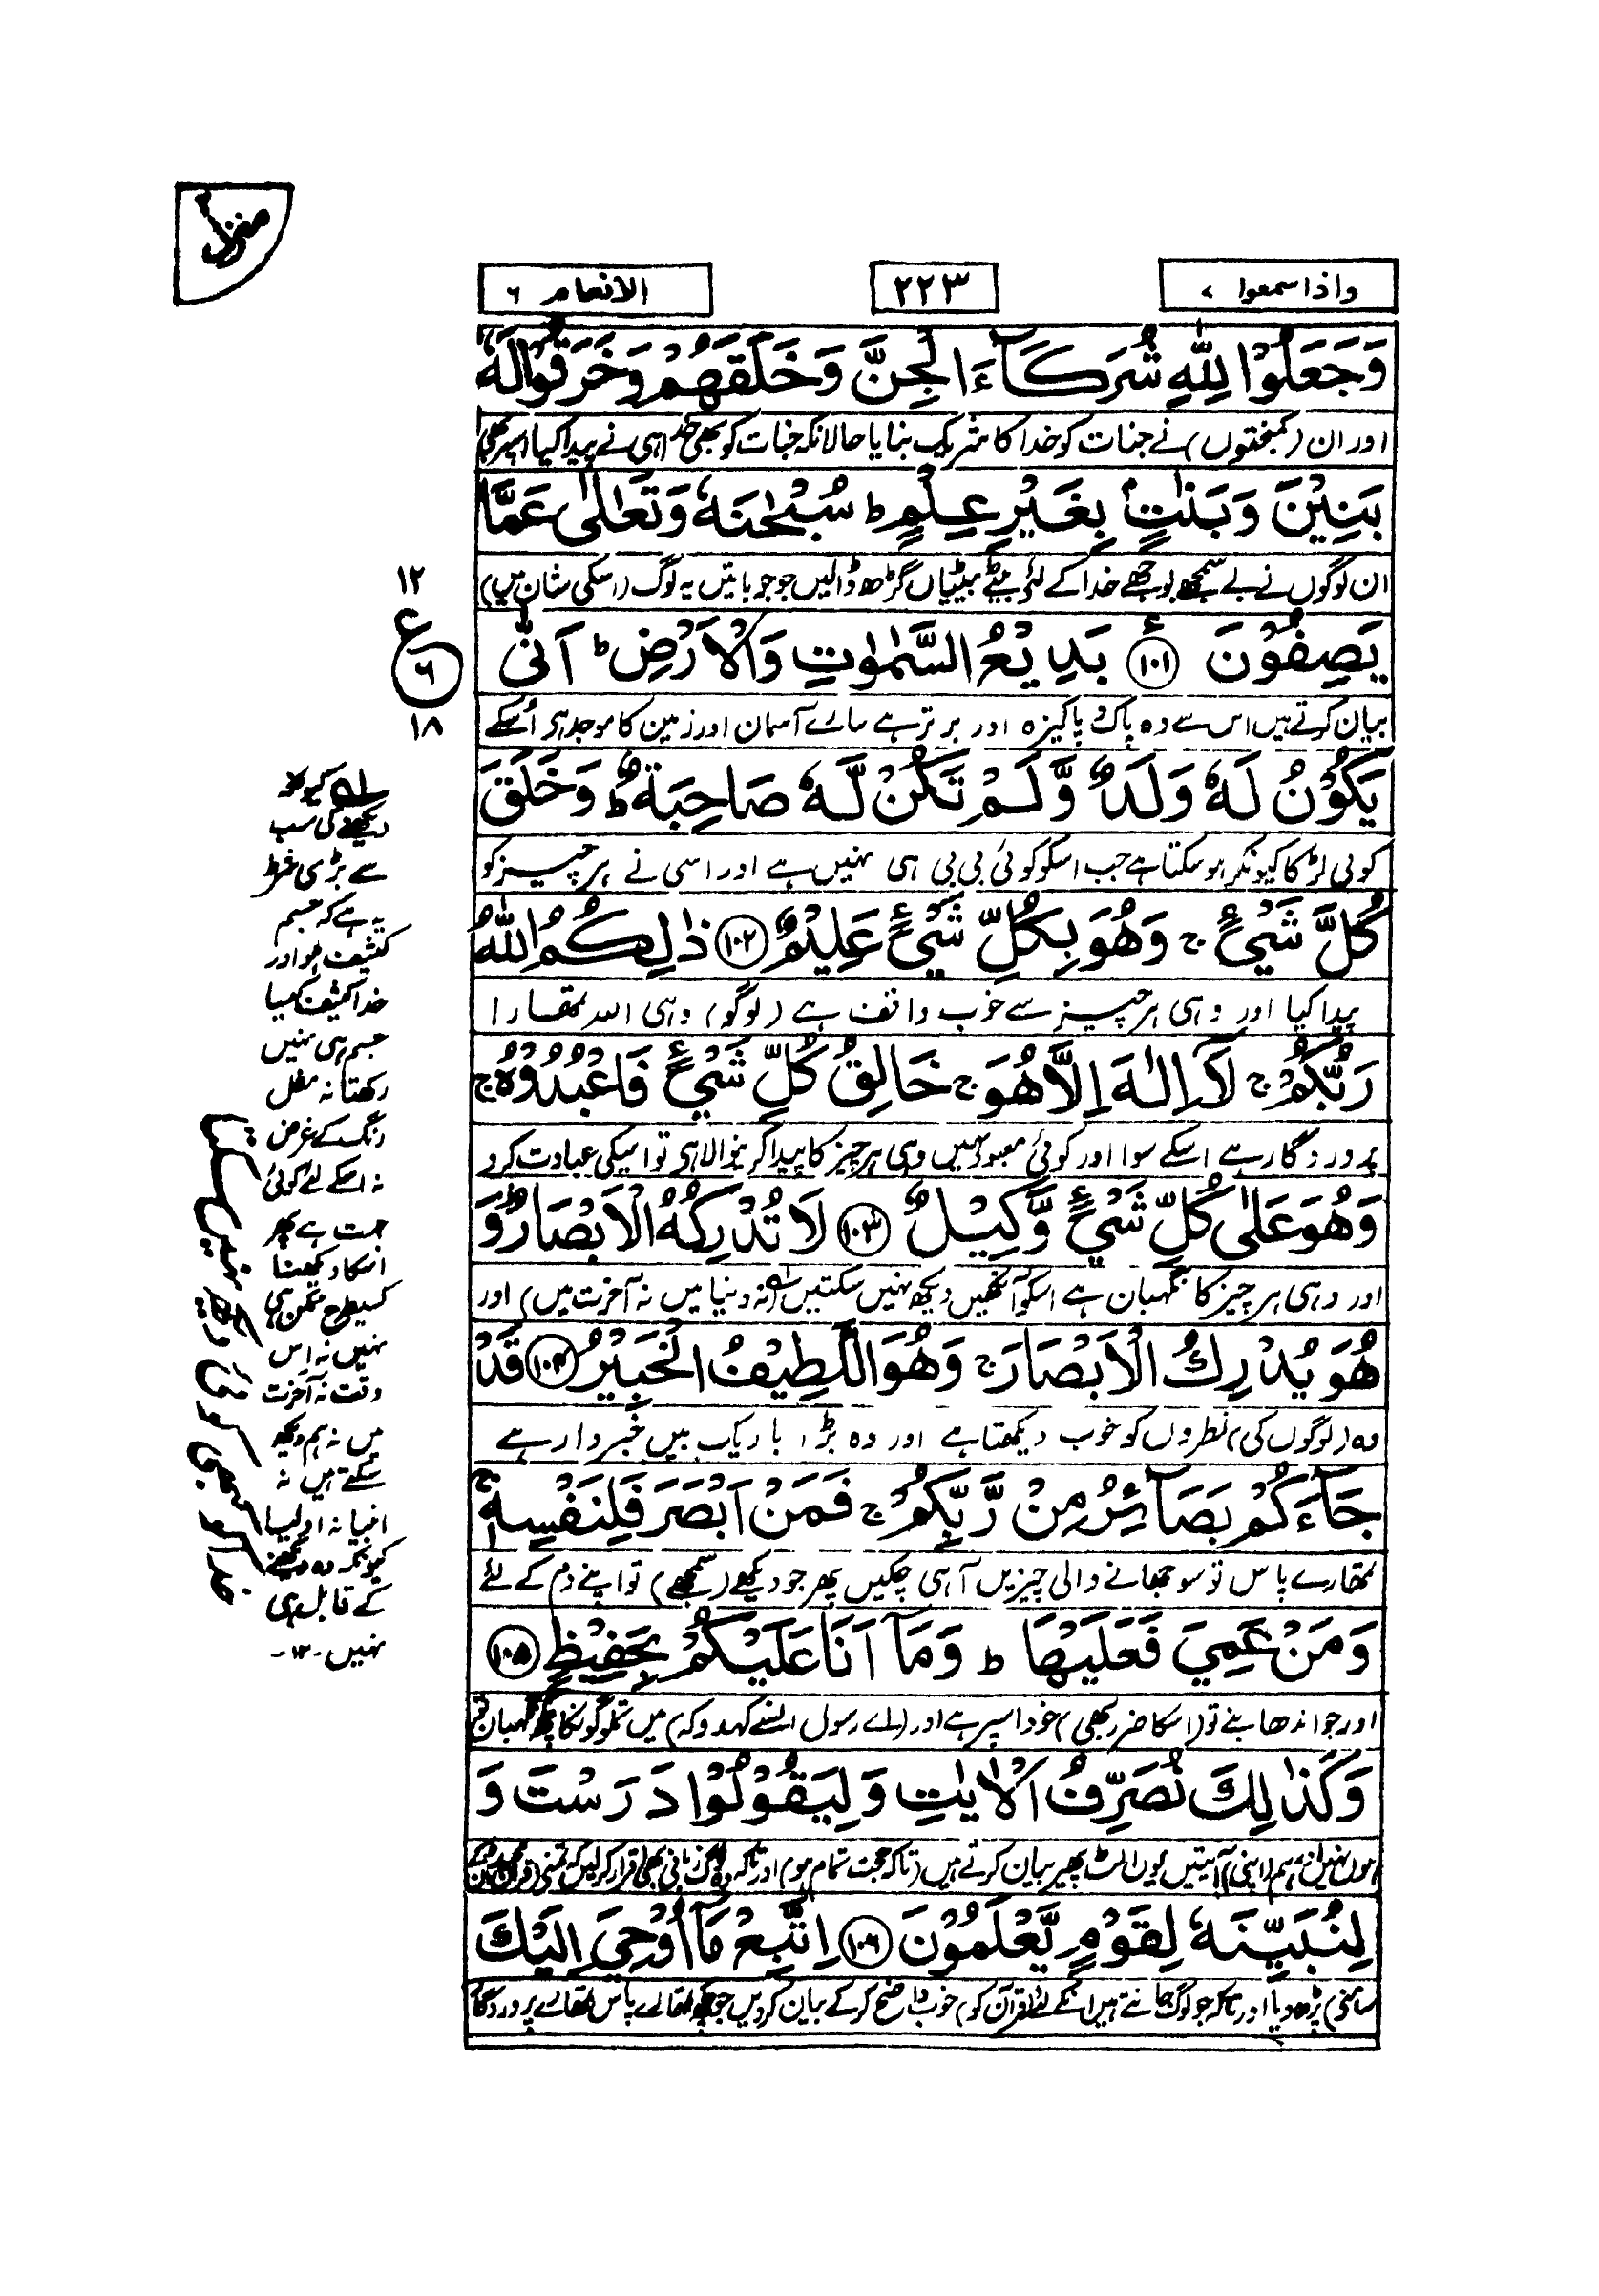 منزل ۲
واذا سمعوا ۷
۲۲۳
الانعام ۶
وَجَعَلُوْا لِلّٰهِ شُرَكَآءَ الْجِنَّ وَخَلَقَهُمْ وَخَرَقُوْا لَهٗ
اور ان (کمبختوں) نے جنات کو خدا کا شریک بنایا حالانکہ جنات کو بھی خدا ہی نے پیدا کیا اسپر بھی
بَنِيْنَ وَبَنٰتٍۭ بِغَيْرِ عِلْمٍ ؕ سُبْحٰنَهٗ وَتَعٰلٰى عَمَّا
ان لوگوں نے بے سمجھے بوجھے خدا کے لئے بیٹے بیٹیاں گڑھ ڈالیں جو جو باتیں یہ لوگ (اسکی شان میں)
يَصِفُوْنَ ۱۰۱ بَدِيْعُ السَّمٰوٰتِ وَالْاَرْضِ ؕ اَنّٰى
بیان کرتے ہیں اس سے وہ پاک و پاکیزہ اور برتر ہے سارے آسمان اور زمین کا موجد ہی اُسکے
يَكُوْنُ لَهٗ وَلَدٌ وَّلَمْ تَكُنْ لَّهٗ صَاحِبَةٌ ؕ وَخَلَقَ
کوئی لڑکا کیونکر ہو سکتا ہے جب اسکو کوئی بی بی ہی نہیں ہے اور اسی نے ہر چیز کو
كُلَّ شَيْءٍ ۚ وَهُوَ بِكُلِّ شَيْءٍ عَلِيْمٌ ۱۰۲ ذٰلِكُمُ اللّٰهُ
پیدا کیا اور وہی ہر چیز سے خوب واقف ہے (لوگو) وہی اللہ تمھارا
رَبُّكُمْ ۚ لَآ اِلٰهَ اِلَّا هُوَ ۚ خَالِقُ كُلِّ شَيْءٍ فَاعْبُدُوْهُ ۚ
پروردگار ہے اسکے سوا اور کوئی معبود نہیں وہی ہر چیز کا پیدا کرنیوالا ہی تو اسیکی عبادت کرو
وَهُوَ عَلٰى كُلِّ شَيْءٍ وَّكِيْلٌ ۱۰۳ لَا تُدْرِكُهُ الْاَبْصَارُ ؗ وَ
اور وہی ہر چیز کا نگہبان ہے اسکو آنکھیں دیکھ نہیں سکتیں (نہ دنیا میں نہ آخرت میں) اور
هُوَ يُدْرِكُ الْاَبْصَارَ ۚ وَهُوَ اللَّطِيْفُ الْخَبِيْرُ ۱۰۴ قَدْ
وہ (لوگوں کی) نظروں کو خوب دیکھتا ہے اور وہ بڑا باریک بیں خبردار ہے
جَآءَكُمْ بَصَآئِرُ مِنْ رَّبِّكُمْ ۚ فَمَنْ اَبْصَرَ فَلِنَفْسِهٖ ۚ
تمھارے پاس تو سوجھانے والی چیزیں آ ہی چکیں پھر جو دیکھے (سمجھے) تو اپنے دم کے لئے
وَمَنْ عَمِيَ فَعَلَيْهَا ؕ وَمَآ اَنَا عَلَيْكُمْ بِحَفِيْظٍ ۱۰۵
اور جو اندھا بنے تو (اسکا ضرر بھی) خود اسپر ہے اور (اے رسول انسے کہدو کہ) میں تم لوگونکا کچھ نگہبان تو
وَكَذٰلِكَ نُصَرِّفُ الْاٰيٰتِ وَلِيَقُوْلُوْا دَرَسْتَ وَ
ہوں نہیں اور ہم (اپنی) آیتیں یوں الٹ پھیر بیان کرتے ہیں (تاکہ حجت تمام ہو) اور تاکہ وہ لوگ زبانی بھی اقرار کرلیں کہ تمنے (قرآن
لِنُبَيِّنَهٗ لِقَوْمٍ يَّعْلَمُوْنَ ۱۰۶ اِتَّبِعْ مَآ اُوْحِيَ اِلَيْكَ
سامنے) پڑھ دیا اور تاکہ جو لوگ جانتے ہیں انکے لئے (قرآن کو) خوب واضح کرکے بیان کردیں جو کچھ تمھارے پاس تمھارے پروردگار
۱۲
ع
۶
۱۸
لہ کیونکہ
دیکھنے کی سب
سے بڑی شرط
یہ ہے کہ جسم
کثیف ہو اور
خدا کثیف کیسا
جسم ہی نہیں
رکھتا نہ شکل
رنگ کے غرض
نہ اسکے لئے کوئی
جہت ہے پھر
اسکا دیکھنا
کسیطرح ممکن ہی
نہیں نہ اس
وقت نہ آخرت
میں نہ ہم دیکھ
سکتے ہیں نہ
انبیا نہ اولیا
کیونکہ وہ دیکھنے
کے قابل ہی
نہیں ۔۱۲۔
خدا کو کبھی کوئی دیکھ نہیں سکتا